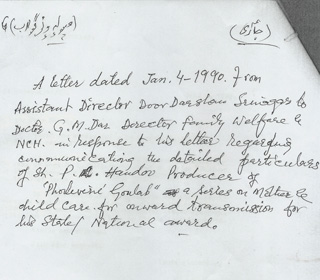 (جاری)
A letter dated Jan. 4-1990. From
Assistant Director Door Darshan Srinagar to
Doctor G.M. Dar Director family Welfare &
NCH. in response to his letter regarding
communicating the detailed particulars
of Sh. P. Handoo Producer of
"Phulwini Goulab" a series on Mother &
child care for onward transmission for
his State/ National award.